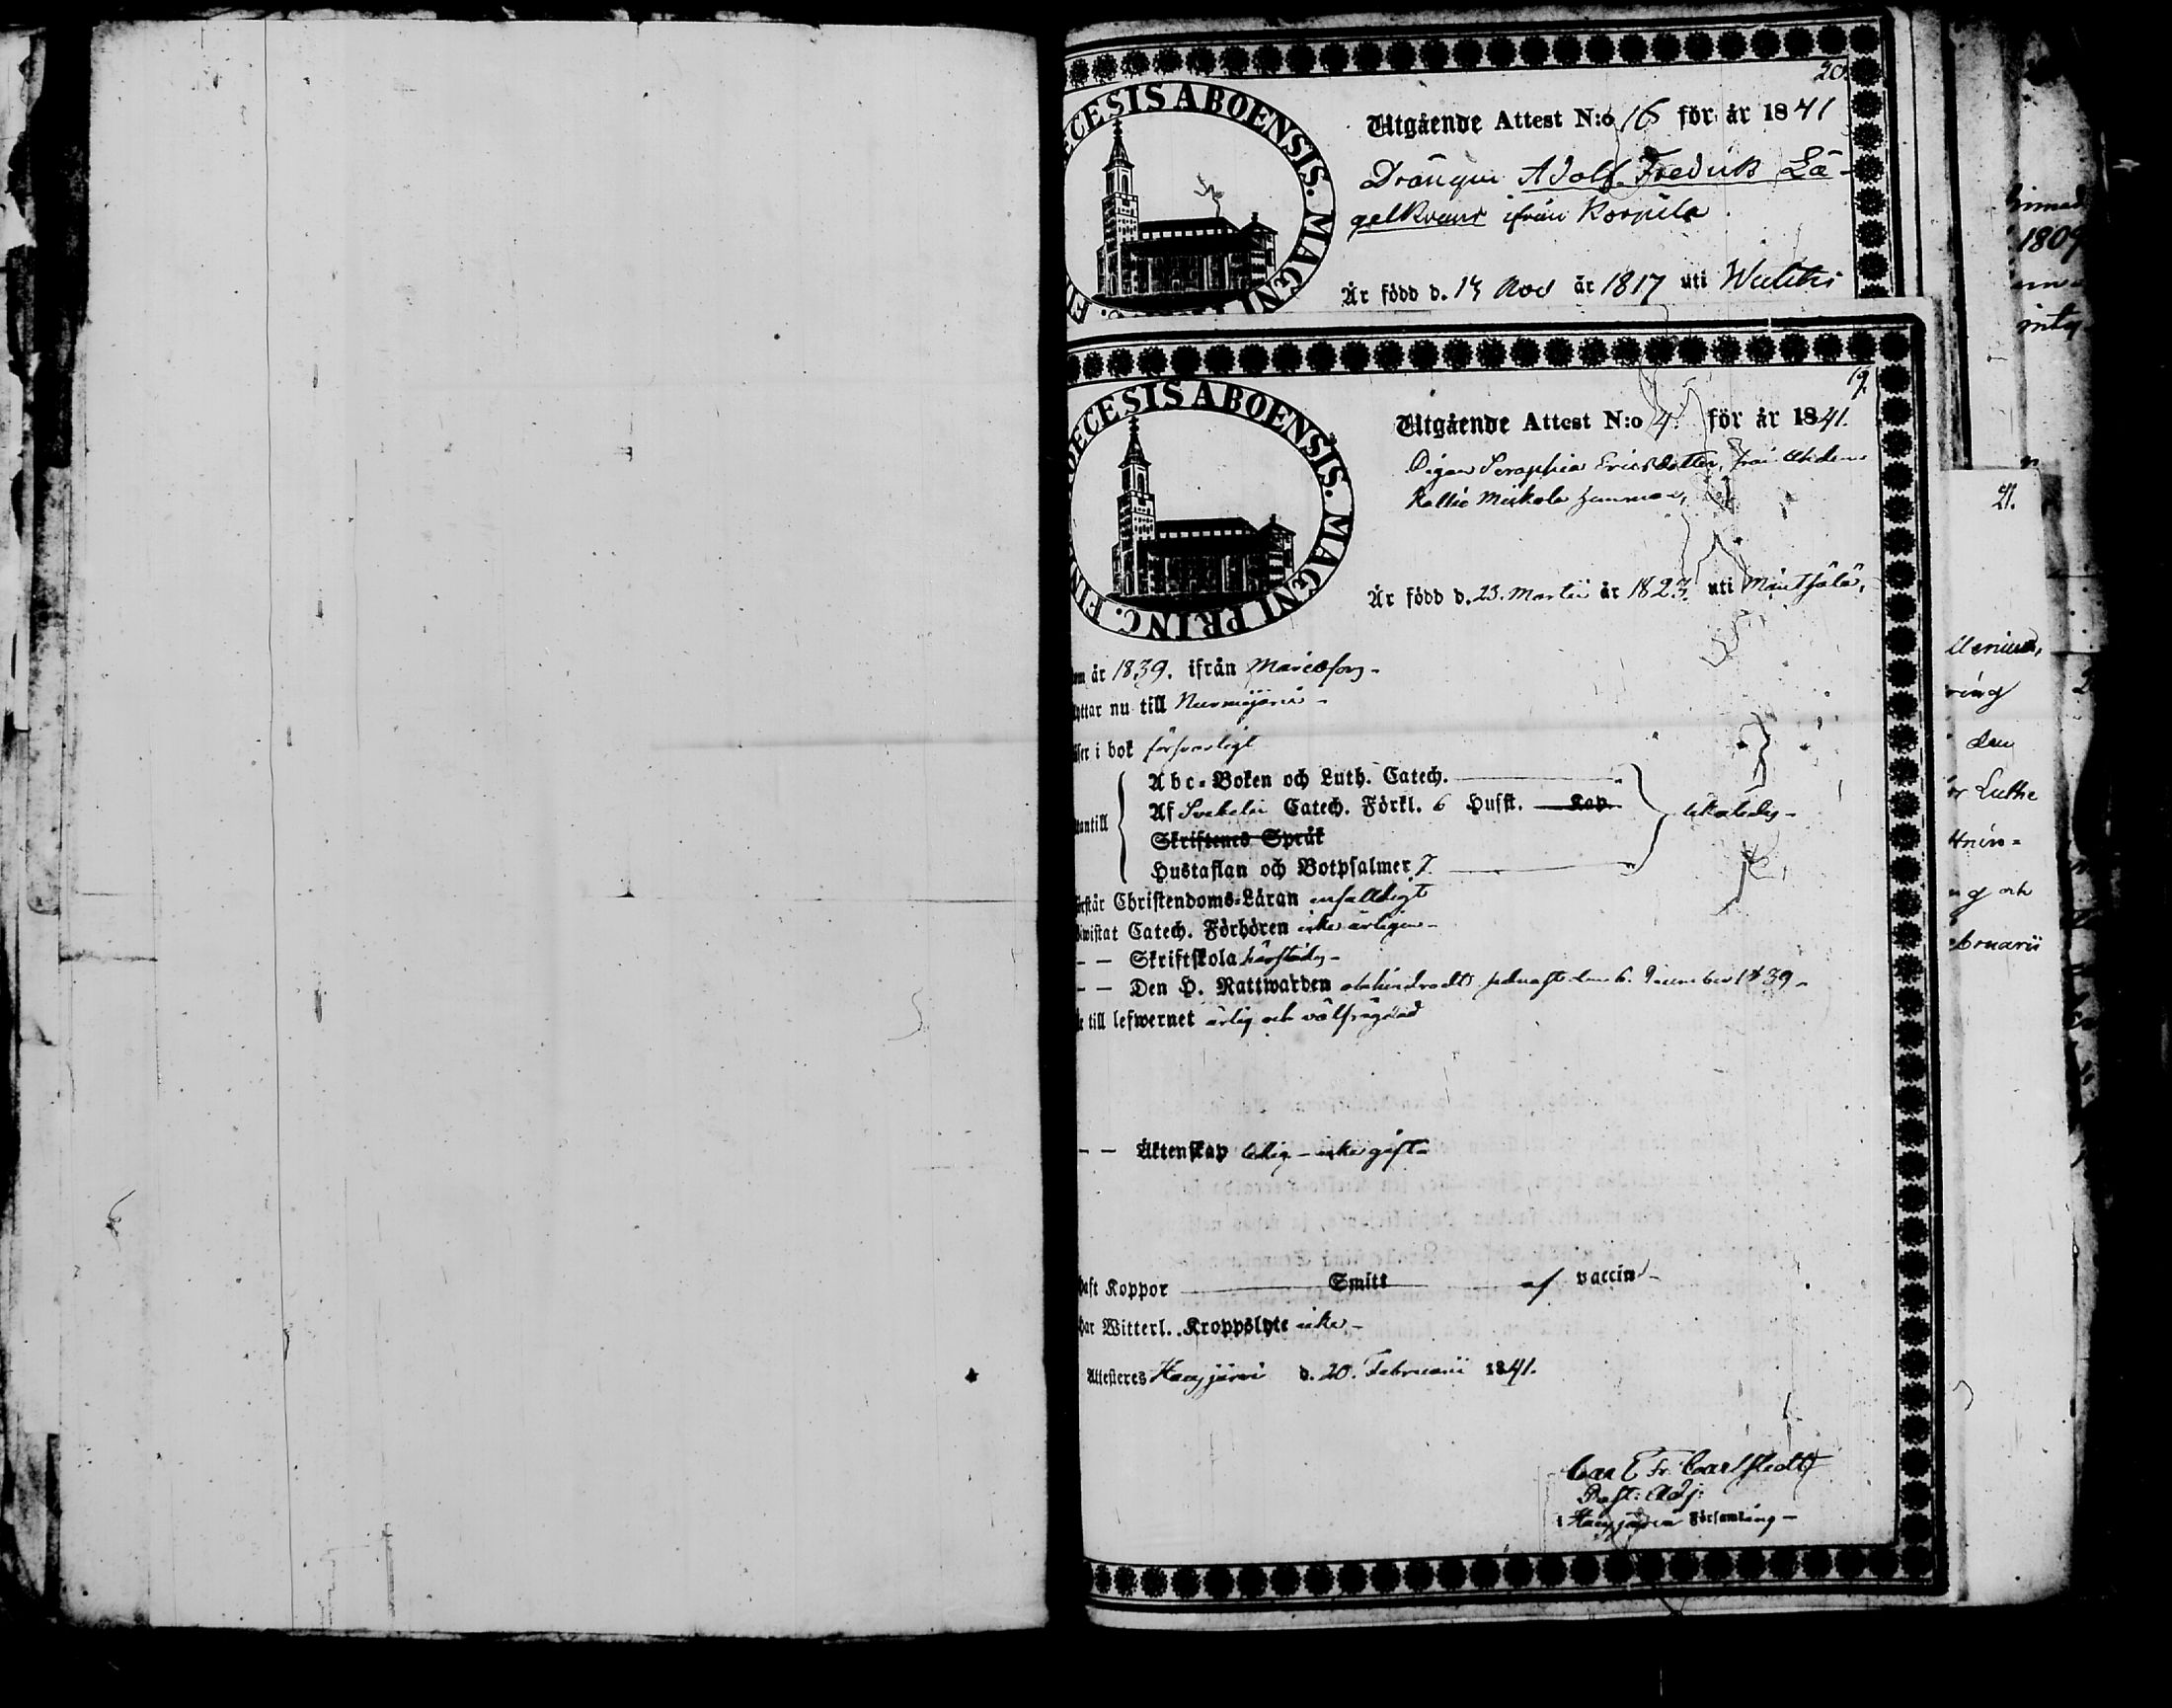 20.
ECESIS ABOENSIS. MAGNI
Utgående Attest N:o 16 för år 1841
Drängen Adolf Fredrik Lä-
gelkrans ifrån Korpila.
Är född d. 13 Nov år 1817 uti Wichtis
19.
OECESIS ABOENSIS. MAGNI PRINC. FIN
Utgående Attest N:o 4. för år 1841.
Pigan Seraphia Ericsdotter, från
Kallio Mickola hemman,
Är född d. 23. Martii år 1823. uti Mäntsälä,
om år 1839. ifrån Mariefors-
yttar nu till Nurmijärvi-
äser i bok försvarligt
Abc-Boken och Luth. Catech.
Af Svebelii Catech. Förkl. 6 Hufst. Kap.
utantill
Skriftenes Språk
Hustaflan och Botpsalmer 7.
örstår Christendoms-Läran enfaldigt
iwistat Catech. Förhören icke årligen-
- - Skriftskola härstädes-
- - Den H. Nattwarden obehindradt sednast den 6. December 1839-
e till lefwernet ärlig och välfrägdad
- - Äktenskap ledig-icke gift-
haft Koppor Smitt af vaccin-
har Witterl. Kroppslyte icke-
Attesteras Hausjärvi d. 20. Februarii 1841.
Carl Fr. Carlstedt
Past: Adj:
i Hausjärvi Församling-
1809
21.
ring
den
ör Luthe
g och
ebruarii